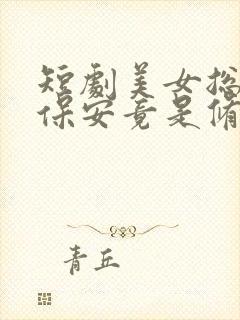 短劇美女总
保安竟是脩
青丘